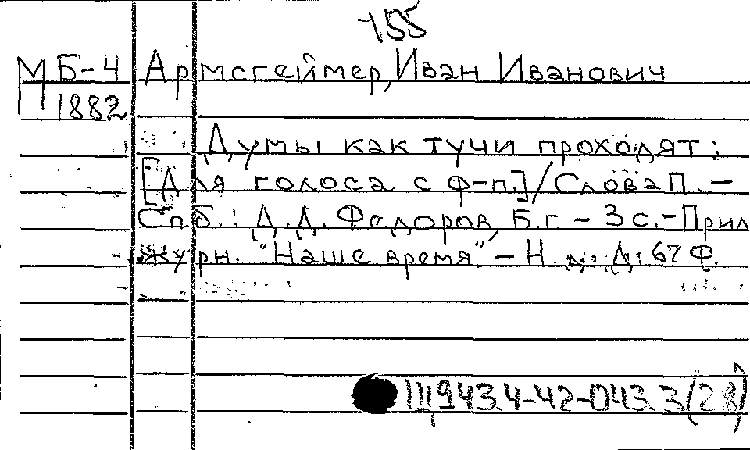 155
МБ-4 Армсгеймер, Иван Иванович
1882
Думы как тучи проходят:
[Для голоса с ф-п.] / Слова П. –
Спб.: Д.Д. Федоров, Б.г – 3 с. – Прил
журн. "Наше время" – Н. д.: Д: 67 Ф.
Щ943.4-42-043.3(28)